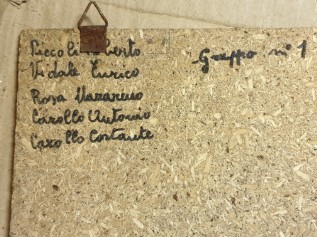 Piccoli berto
Vidale Enrico
Rosa Nazareno
Carollo Antonio
Carollo Costante
Gruppo n° 1